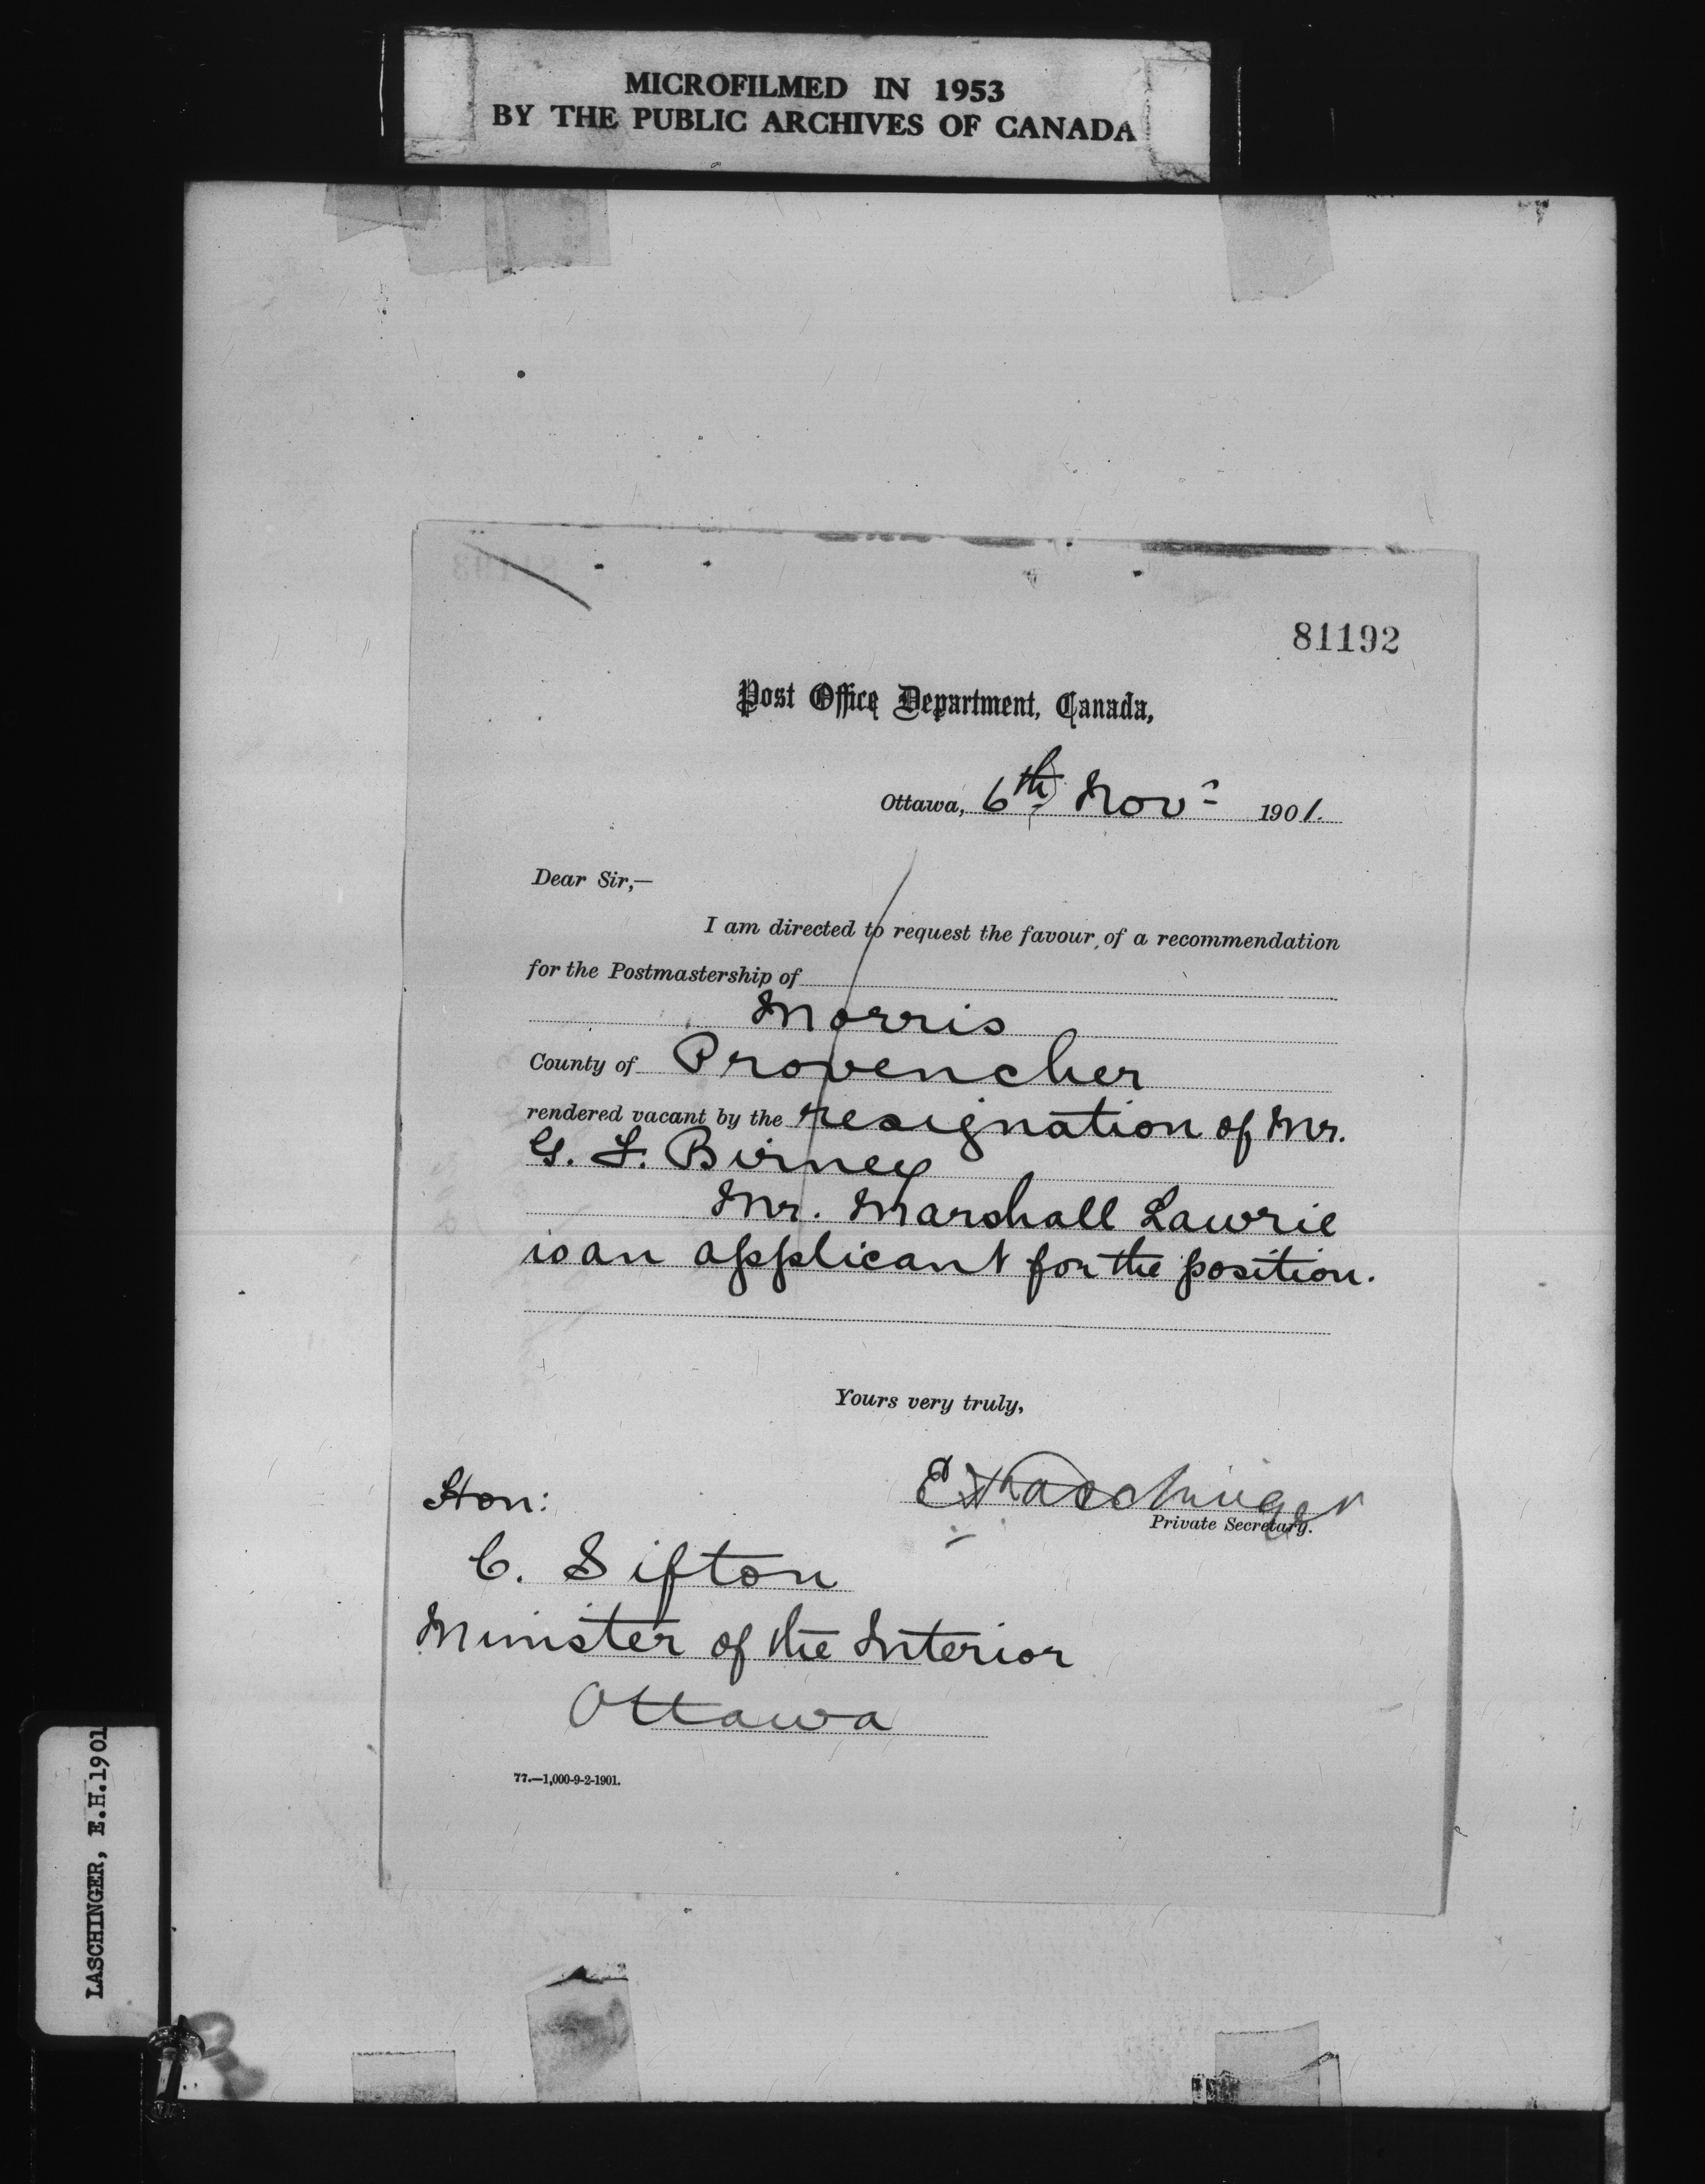 MICROFILMED IN 1953
BY THE PUBLIC ARCHIVES OF CANADA
81192
Post Office Department, Canada,
Ottawa, 6th Novr 1901.
Dear Sir,—
I am directed to request the favour of a recommendation
for the Postmastership of
Morris
County of Provencher
rendered vacant by the resignation of Mr.
G. F. Birney
Mr. Marshall Lawrie
is an applicant for the position.
Yours very truly,
E H Laschinger
Private Secretary.
Hon:
C. Sifton
Minister of the Interior
Ottawa
77.—1,000-9-2-1901.
LASCHINGER, E.H.1901